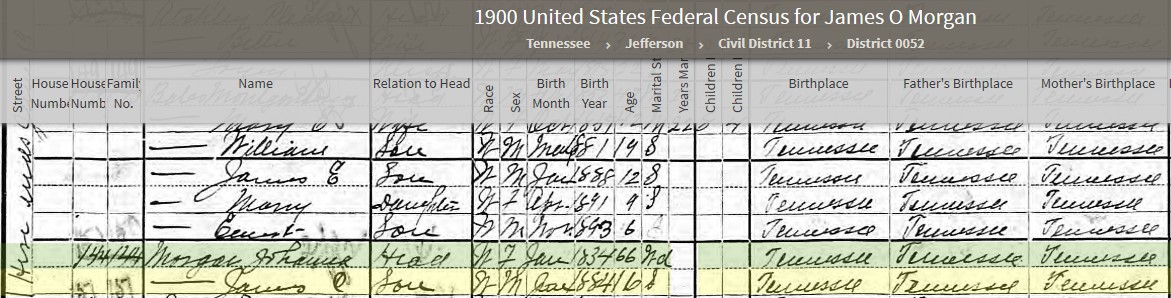 1900 United States Federal Census for James O Morgan
Tennessee › Jefferson › Civil District 11 › District 0052
Street House Number House Numb Family No. Name Relation to Head Race Sex Birth Month Birth Year Age Marital St Years Mar Children Children Birthplace Father's Birthplace Mother's Birthplace
Tennessee Tennessee Tennessee
— William Son W M May 1881 19 S Tennessee Tennessee Tennessee
— James E Son W M Jan 1888 12 S Tennessee Tennessee Tennessee
— Mary Daughter W F 1891 9 S Tennessee Tennessee Tennessee
— Son W M Nov 1893 6 Tennessee Tennessee Tennessee
144 144 Morgan Head W F Jan 1834 66 Wd Tennessee Tennessee Tennessee
— James O Son W M Jan 1884 16 S Tennessee Tennessee Tennessee